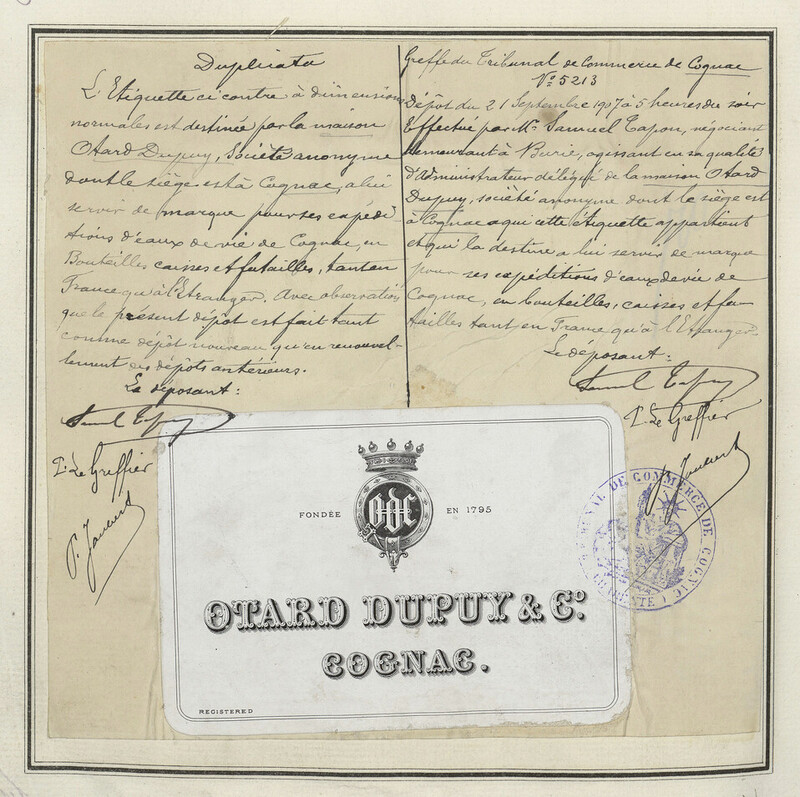 Duplicata
L'Etiquette ci contre à dimensions
normales est destinée par la maison
Otard Dupuy, Société anonyme
dont le siège est à Cognac, a lui
servir de marque pour ses expédi
tions d'eaux de vie de Cognac, en
Bouteilles caisses et futailles, tant en
France qu'à l'Etranger. Avec observation
que le présent dépôt est fait tant
comme dépôt nouveau qu'en renouvel-
lement des dépôts antérieurs.
Le déposant :
P. Le Greffier
Greffe du Tribunal de Commerce de Cognac
N° 5213
Dépôt du 21 Septembre 1907 à 5 heures du soir
Effectué par Mr. Samuel Tapon, négociant
demeurant à Burie, agissant en sa qualité
d'Administrateur délégué de la maison Otard
Dupuy, société anonyme dont le siège est
à Cognac a qui cette étiquette appartient
et qui la destine a lui servir de marque
pour ses expéditions d'eaux de vie de
Cognac, en bouteilles, caisses et fu
tailles tant en France qu'à l'Etranger.
Le déposant :
P. Le Greffier
FONDÉE EN 1795
ODC
OTARD DUPUY & Co.
COGNAC.
REGISTERED
TRIBUNAL DE COMMERCE DE COGNAC
(CHARENTE)